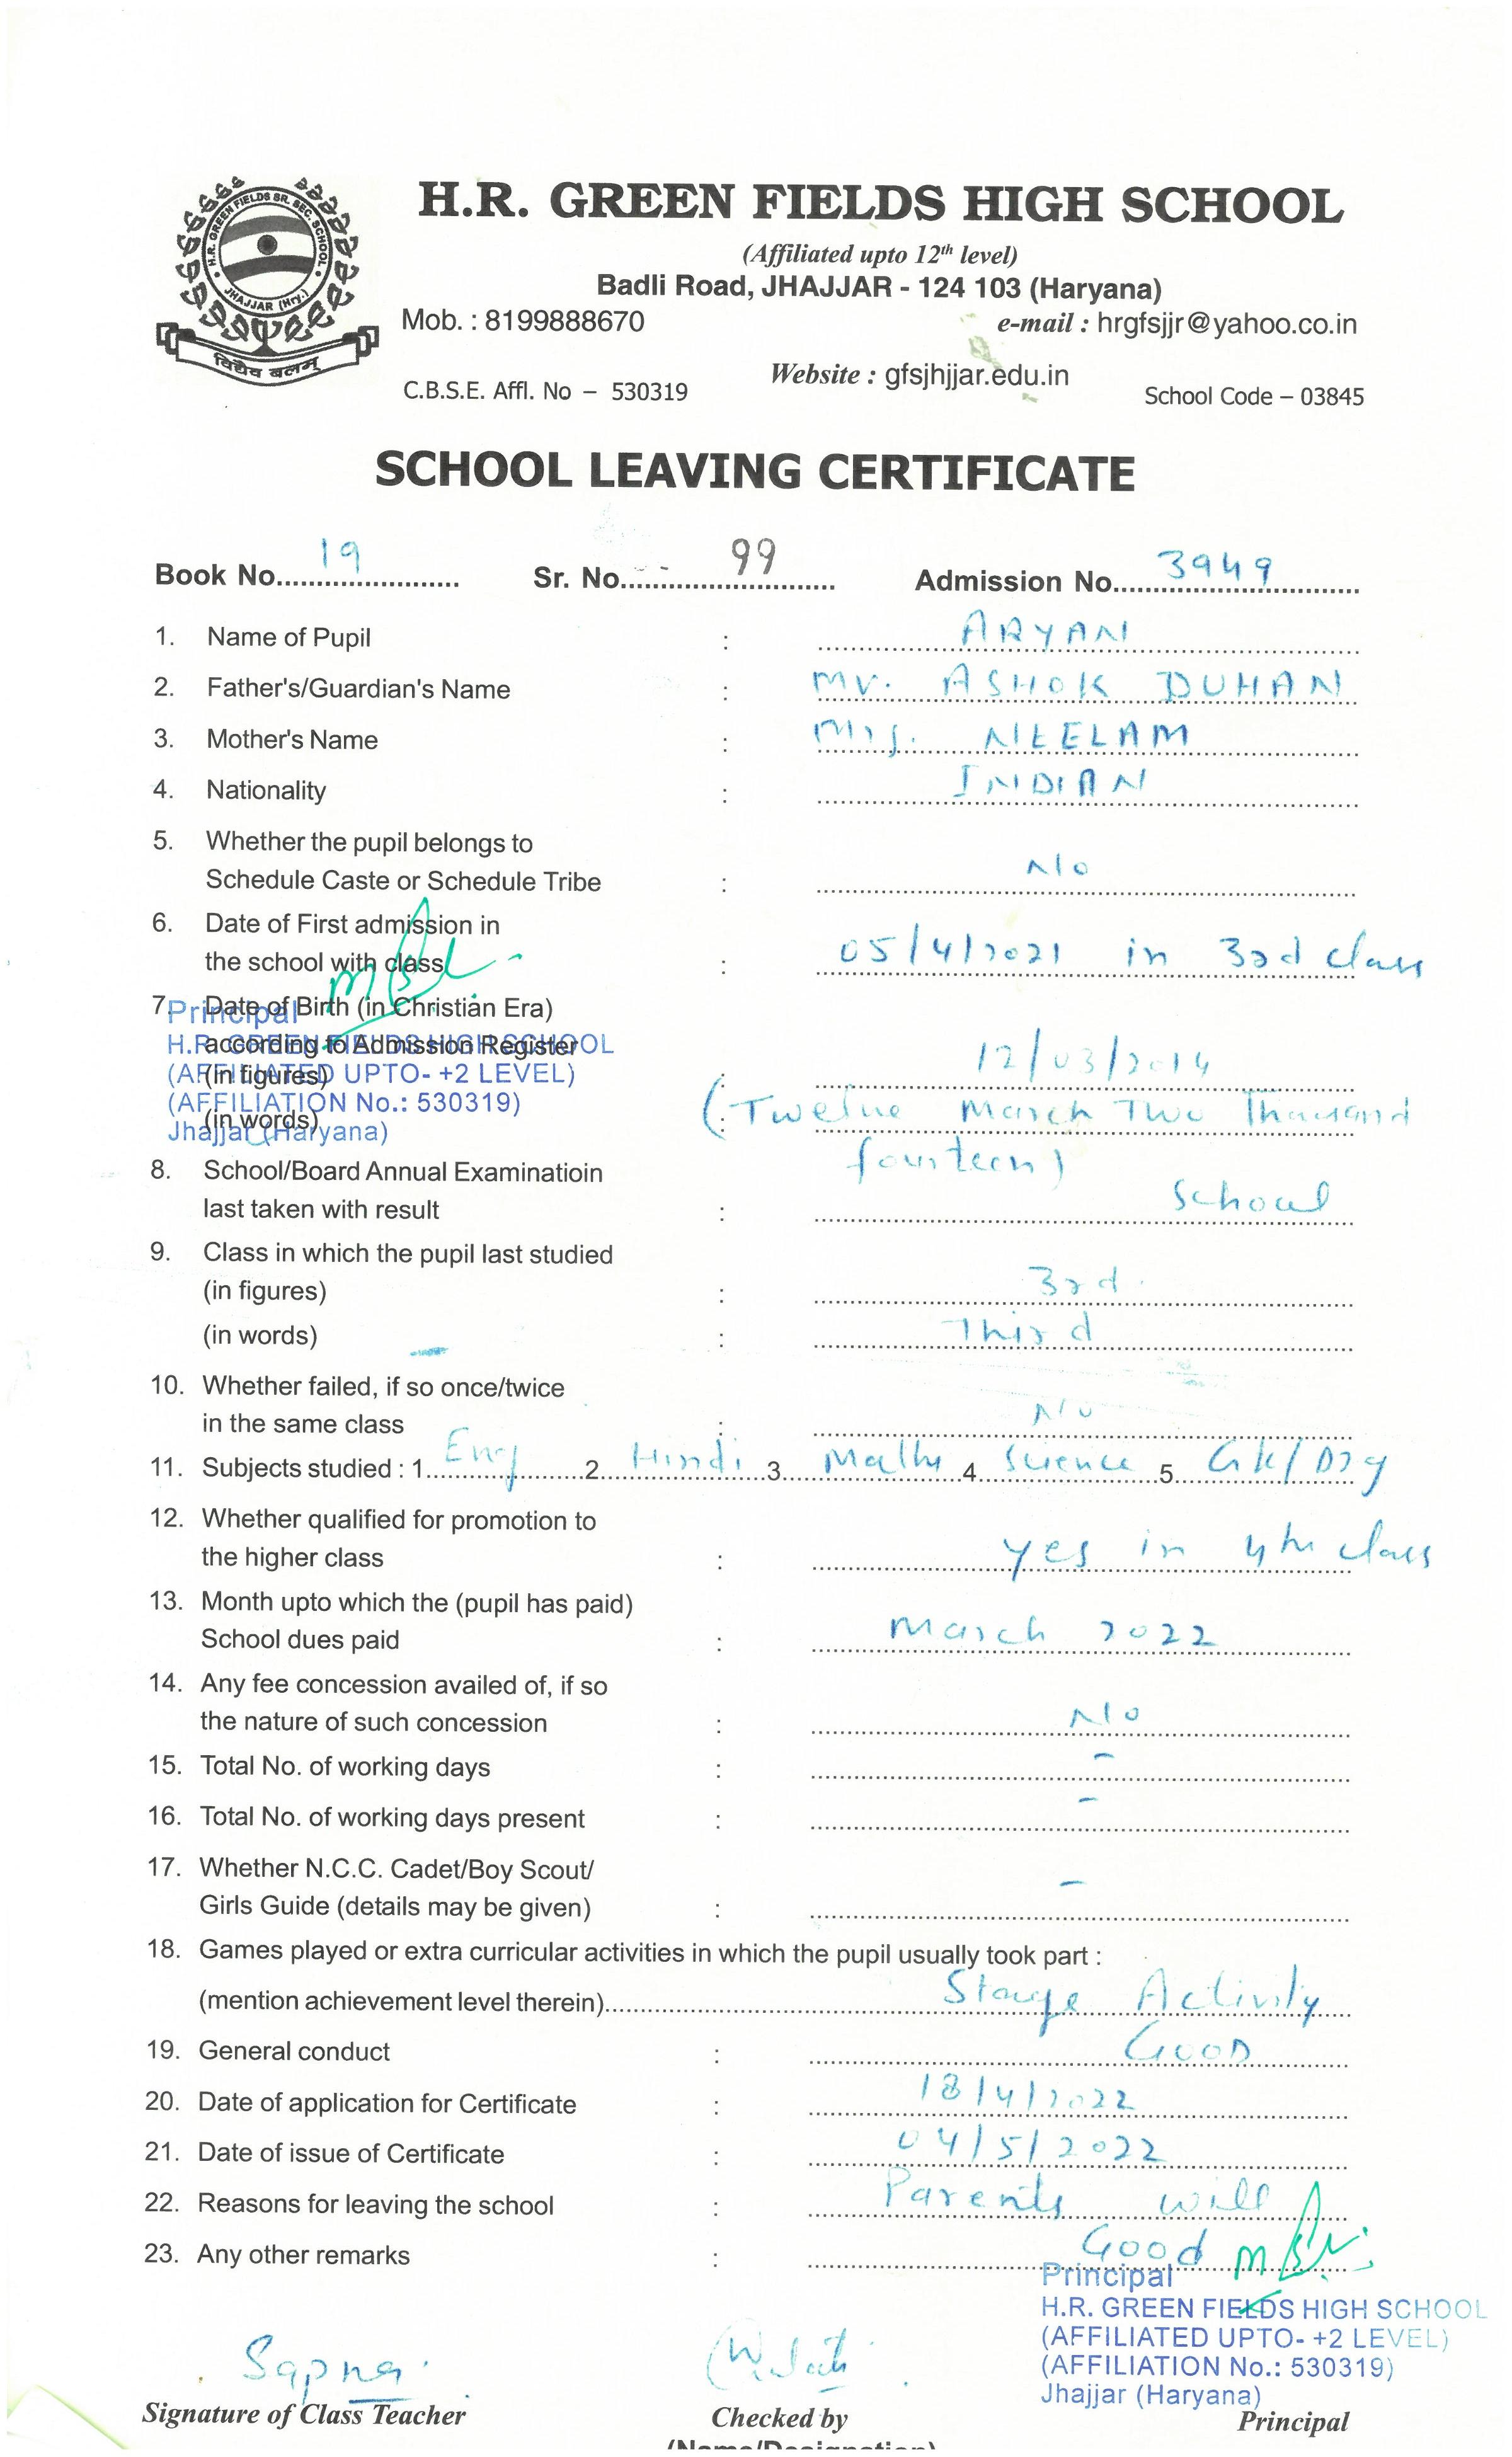 H.R. GREEN FIELDS SR. SEC. SCHOOL
JHAJJAR (Hry.)
विद्यैव बलम्
H.R. GREEN FIELDS HIGH SCHOOL
(Affiliated upto 12th level)
Badli Road, JHAJJAR - 124 103 (Haryana)
Mob. : 8199888670 e-mail : hrgfsjjr@yahoo.co.in
C.B.S.E. Affl. No – 530319 Website : gfsjhjjar.edu.in School Code – 03845
SCHOOL LEAVING CERTIFICATE
Book No. 19 Sr. No. 99 Admission No. 3949
1. Name of Pupil : ARYAN
2. Father's/Guardian's Name : Mr. ASHOK DUHAN
3. Mother's Name : Mrs. NEELAM
4. Nationality : INDIAN
5. Whether the pupil belongs to
Schedule Caste or Schedule Tribe : No
6. Date of First admission in
the school with class : 05/4/2021 in 3rd class
7. Date of Birth (in Christian Era)
according to Admission Register
(in figures) : 12/03/2014
(in words) : (Twelve March Two Thousand
fourteen)
Principal
H.R. GREEN FIELDS HIGH SCHOOL
(AFFILIATED UPTO- +2 LEVEL)
(AFFILIATION No.: 530319)
Jhajjar (Haryana)
8. School/Board Annual Examinatioin
last taken with result : School
9. Class in which the pupil last studied
(in figures) : 3rd
(in words) : Third
10. Whether failed, if so once/twice
in the same class : No
11. Subjects studied : 1. Eng 2. Hindi 3. Maths 4. Science 5. GK/Drg
12. Whether qualified for promotion to
the higher class : yes in 4th class
13. Month upto which the (pupil has paid)
School dues paid : March 2022
14. Any fee concession availed of, if so
the nature of such concession : No
15. Total No. of working days : -
16. Total No. of working days present : -
17. Whether N.C.C. Cadet/Boy Scout/
Girls Guide (details may be given) : -
18. Games played or extra curricular activities in which the pupil usually took part :
(mention achievement level therein) Stage Activity
19. General conduct : GOOD
20. Date of application for Certificate : 18/4/2022
21. Date of issue of Certificate : 04/5/2022
22. Reasons for leaving the school : Parents will
23. Any other remarks : Good
Principal
H.R. GREEN FIELDS HIGH SCHOOL
(AFFILIATED UPTO- +2 LEVEL)
(AFFILIATION No.: 530319)
Jhajjar (Haryana)
Sapna
Signature of Class Teacher Checked by Principal
(Name/Designation)